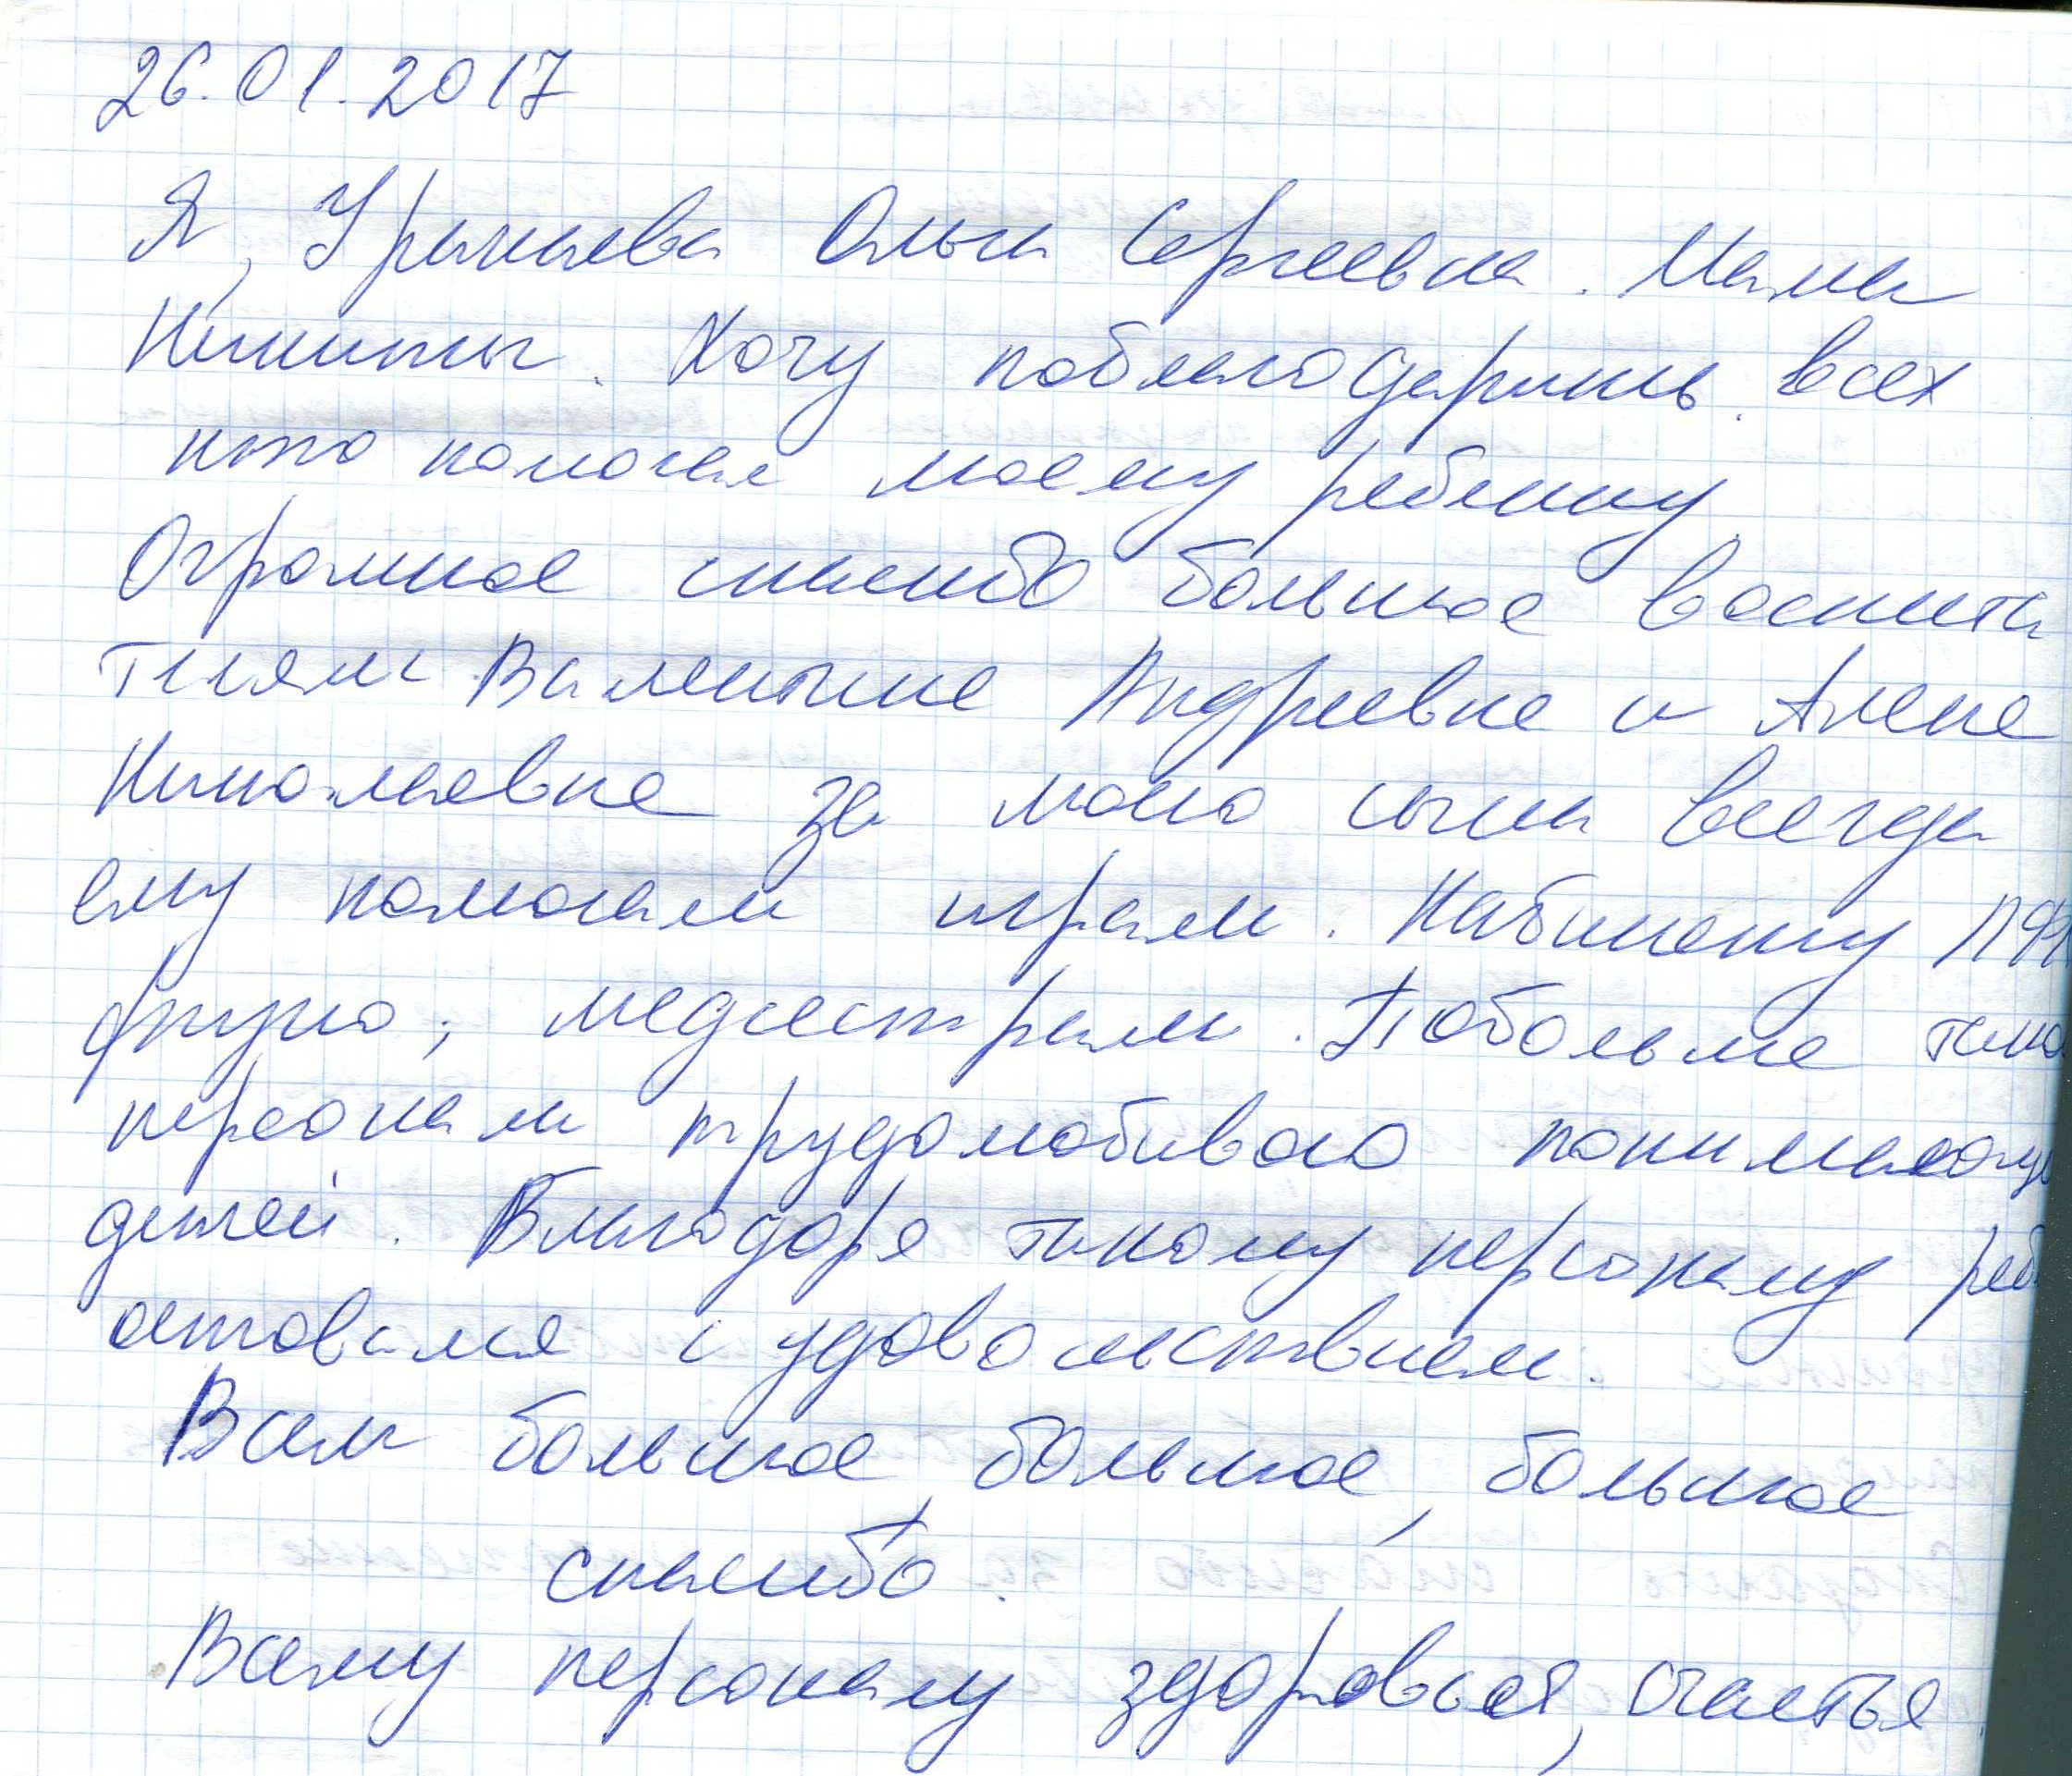 26.01.2017
Я, Ольга Сергеевна. Мама
Никиты. Хочу поблагодарить всех
кто помогал моему ребенку
Огромное спасибо большое воспита
телям Валентине Андреевне и Алене
Николаевне за моно сына всегда
ему помогали играли. Кабинету
физио, медсестрам. Побольше тако
персонали трудолюбивого понимающ
детей. Благодоря такому персоналу реб
остовался с удовольствием.
Вам большое, большое, большое
спасибо.
Всему персоналу здоровья, счастья